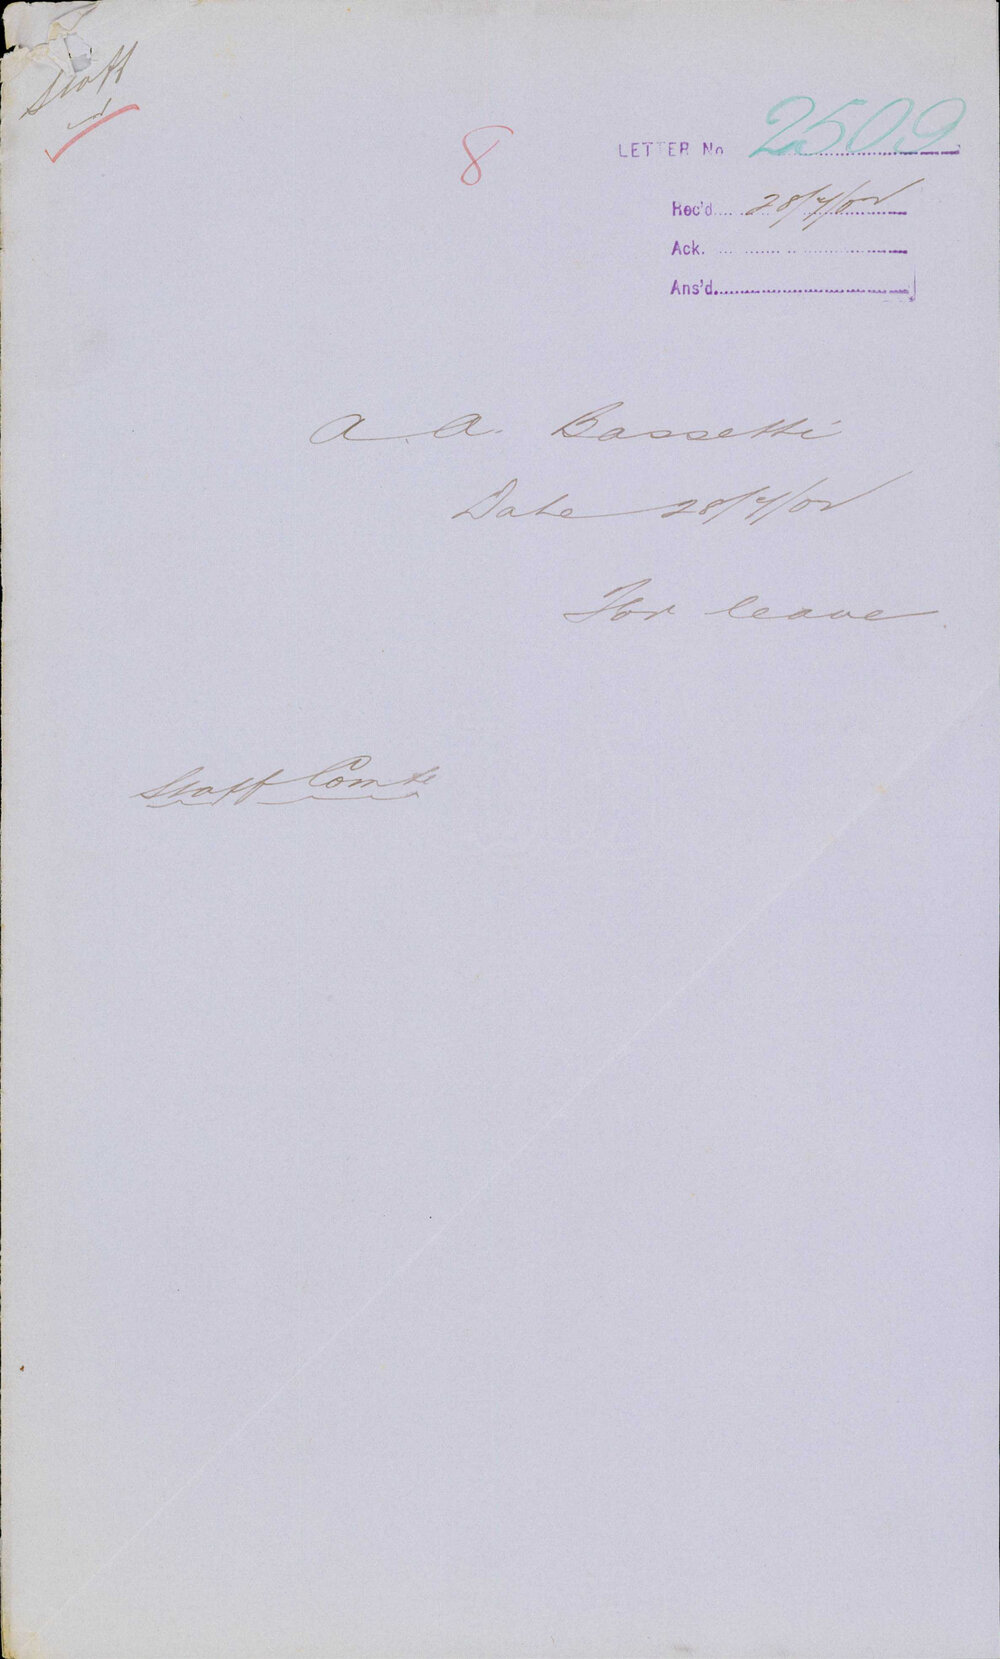 Staff
8
LETTER No 2509
Rec'd 28/4/02
Ack.
Ans'd.
A. A. Bassetti
Date 28/4/02
For leave
Staff Comte